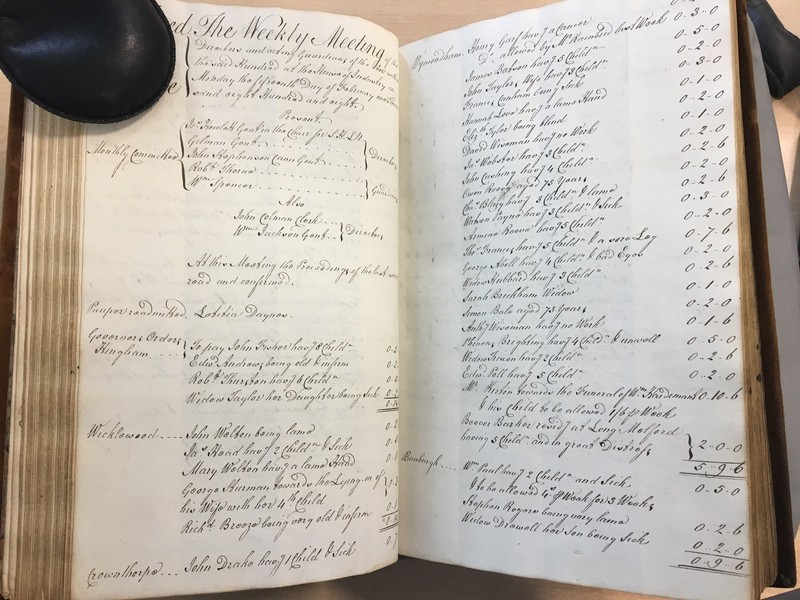 ed The Weekly Meeting of the
Directors and acting Guardians of the Poor within
the said Hundred at the House of Industry on
Monday the fifteenth Day of February one Thou
sand eight Hundred and eight.
Present
Gent in the Chair for
Gilman Gent
Monthly Committee John Stephenson Cann Gent
Directors
Robt Thorne
Wm Spencer
Guardians
Also
John Colman Clerk
Wm Jackson Gent
Directors
At this Meeting the Proceedings of the last were
read and confirmed.
Pauper readmitted. Letitia Daynes
Governors Orders
Hingham To pay John Fisher havg 8 Childn
Edwd Andrews being old & infirm
Robt Thurston havg 6 Childn
Widow Taylor her Daughter being Sick
Wicklewood John Wolton being lame
Jas Road havg 2 Childn & Sick
Mary Wolton havg a lame Hand
George Sturman towards the Lying-in of
his Wife with her 4th Child
Richd Breeze being very old & infirm
Crownthorpe John Drake havg 1 Child & Sick
Wymondham Henry Garf havg a Cancer
Do allowed by Mr last Week 0-3-0
James Babson havg 5 Childn 0-5-0
John Taylors Wife havg 3 Childn 0-3-0
Frances Canham being Sick 0-1-0
Hannah Love havg a lame Hand 0-2-0
Elizth Tyler being blind 0-1-0
David Wiseman havg no Work 0-2-0
Jas Webster havg 3 Childn 0-2-6
John Cushing havg 4 Childn 0-2-0
Owen Roxey aged 75 Years 0-2-6
Chas Blazy havg 3 Childn & lame 0-3-0
Watson Payne havg 3 Childn & Sick
havg 5 Childn 0-2-0
Thos Frances havg 5 Childn & a sore Leg 0-7-6
George Abell havg 4 Childn & bad Eyes 0-2-0
Widow Hubbard havg 3 Childn 0-2-6
Sarah Brickham Widow 0-1-0
Simon Bale aged 73 Years 0-2-0
Anthy Wiseman havg no Work 0-1-6
Brighting havg 4 Childn & unwell 0-5-0
Widow havg 2 Childn 0-2-6
Edwd Poll havg 5 Childn 0-2-0
Mr towards the Funeral of Wm Hardiment 0-10-6
& his Child to be allowed 1/6 p Week
Beever Barker residg at Long Melford
having 5 Childn and in great Distress 2-0-0
5-9-6
Wm Paul havg 2 Childn and Sick
& to be allowed 4s p Week for 3 Weeks 0-5-0
Stephen Rogers being very lame 0-2-6
Widow Drewell her Son being Sick 0-2-0
0-9-6